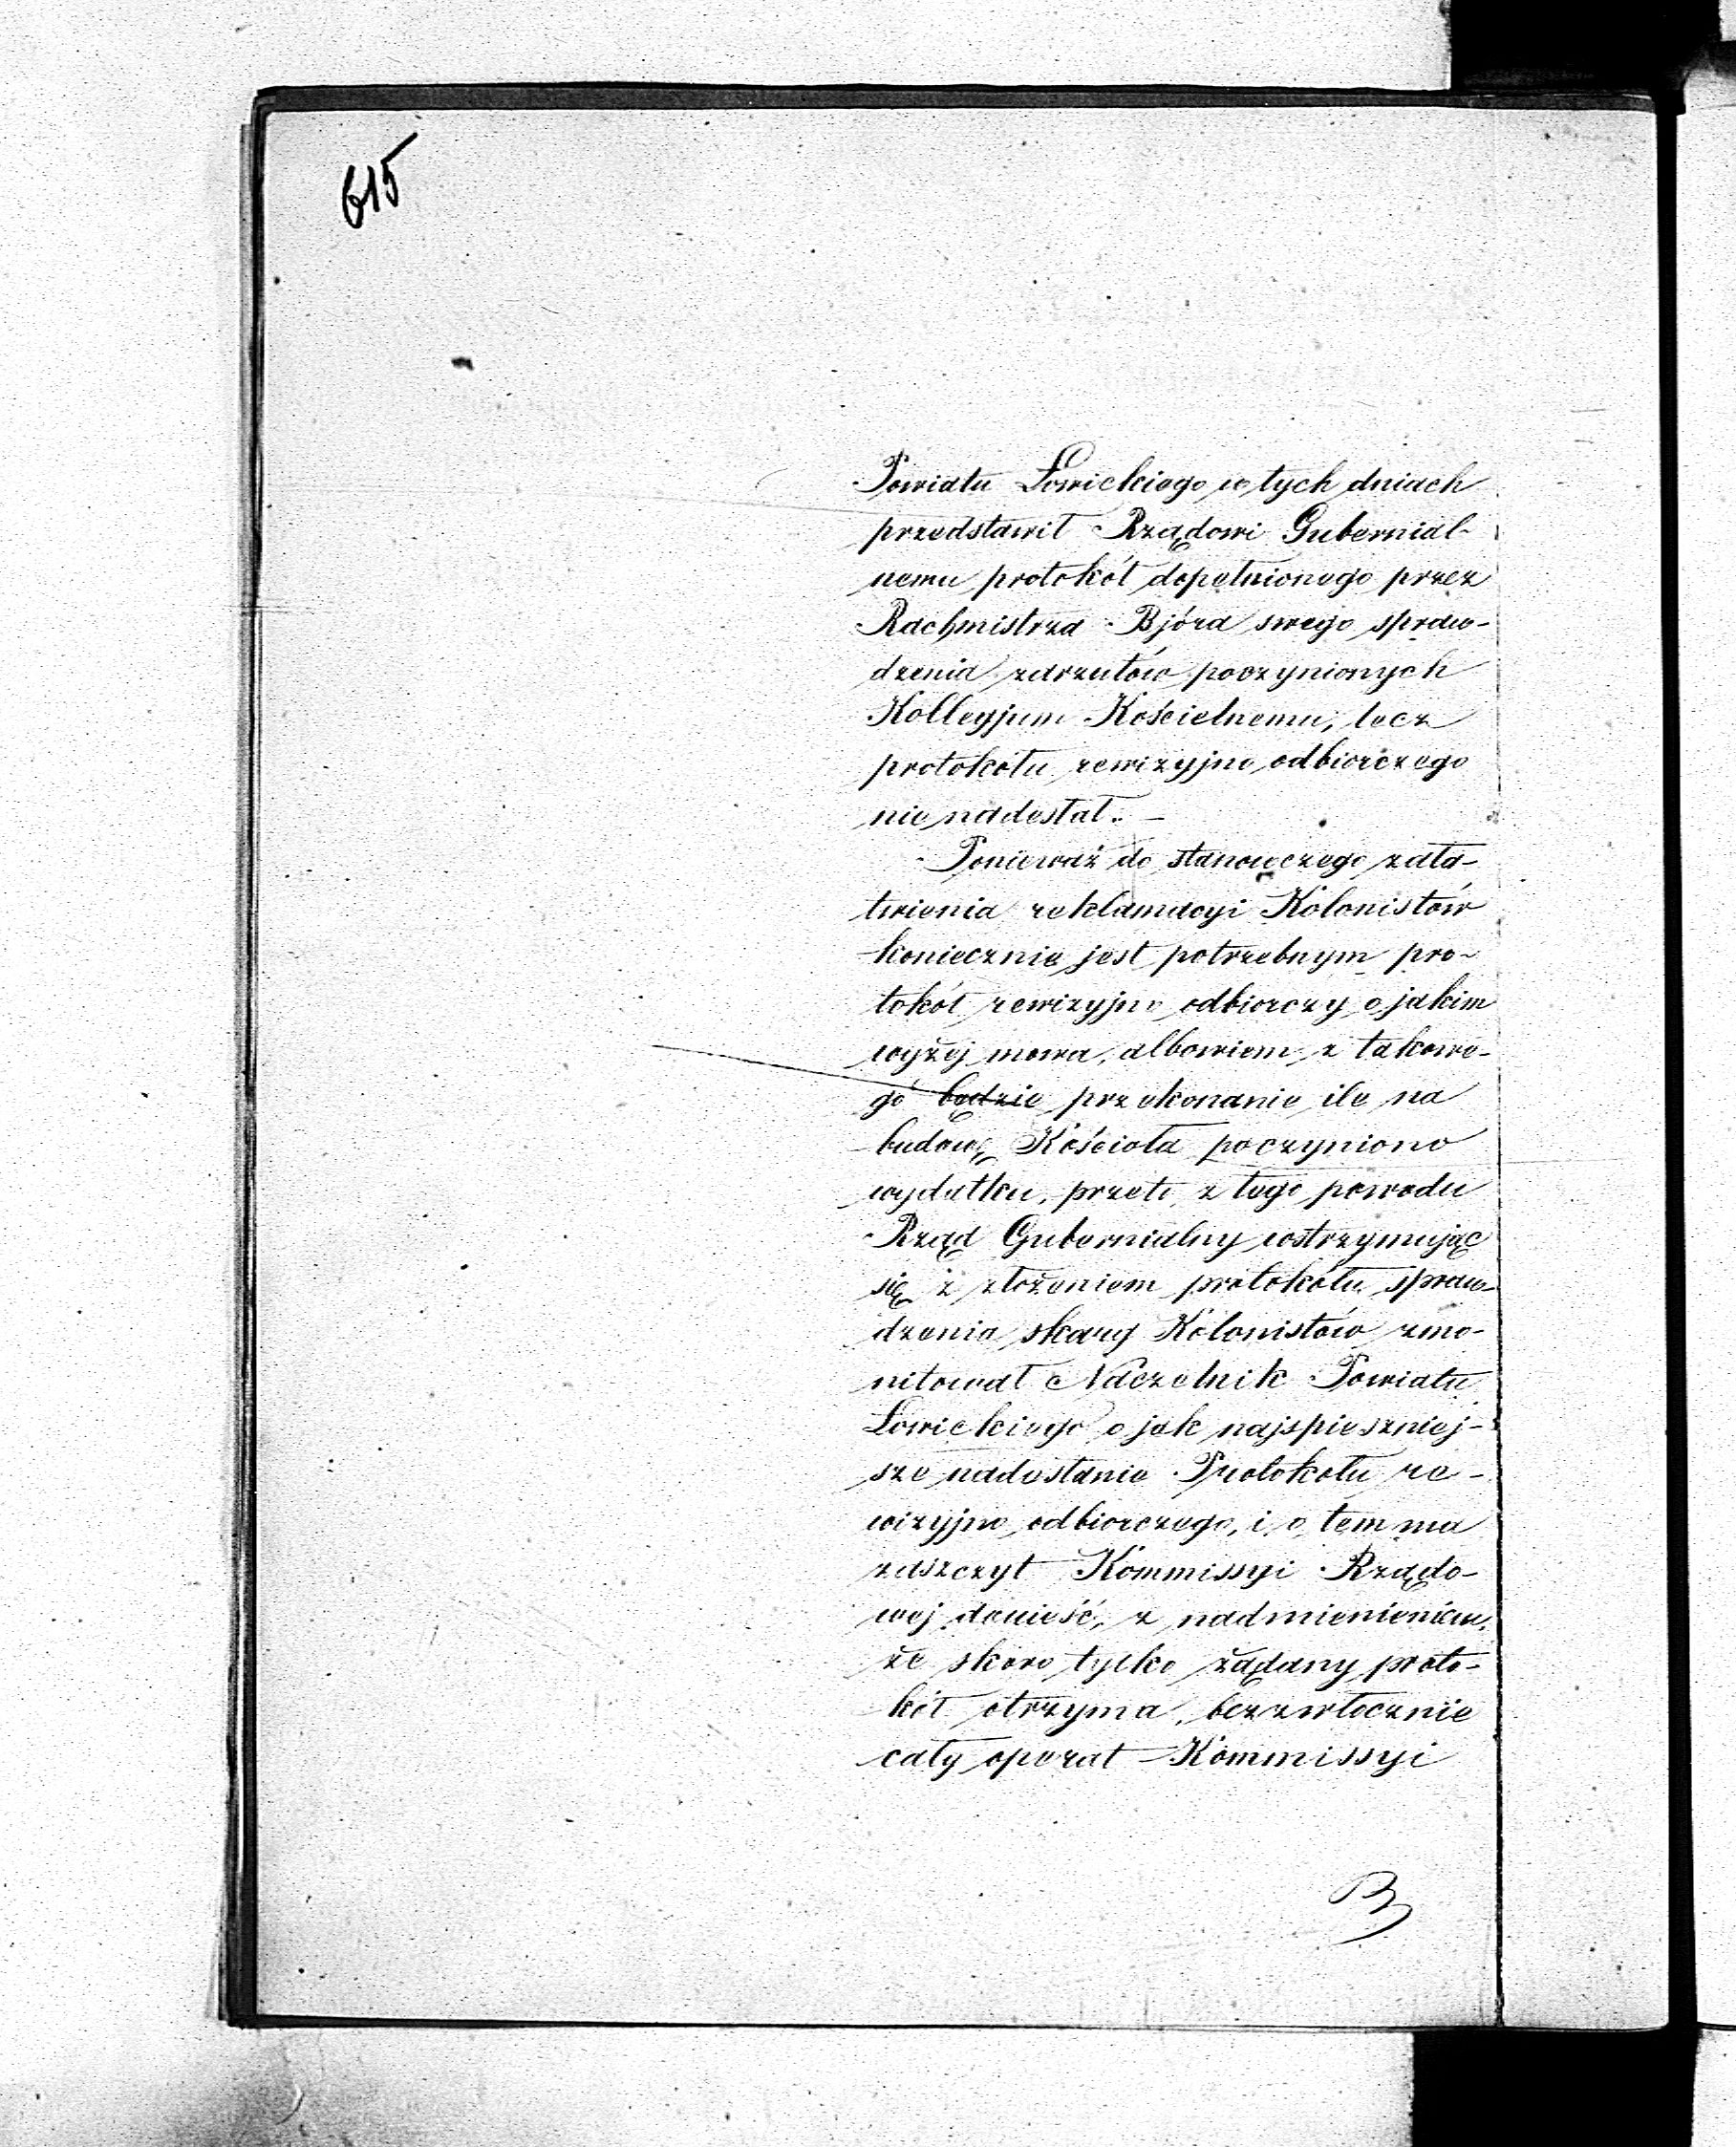 615
Powiatu Łowickiego w tych dniach
przedstawił Rządowi Gubernial-
nemu protokół dopełnionego przez
Rachmistrza Bjóra swego spraw-
dzenia zarzutów poczynionych
Kollegjum Kościelnemu, lecz
protokółu rewizyjno odbiorczego
nie nadesłał. -
Ponieważ do stanowczego zała-
twienia reklamacyi Kolonistów
koniecznie jest potrzebnym pro-
tokół rewizyjno odbiorczy o jakim
wyżej mowa, albowiem z takowe-
go będzie przekonanie ile na
budowę Kościoła poczyniono
wydatku, przeto z tego powodu
Rząd Gubernialny wstrzymując
się z złożeniem protokółu spraw-
dzenia skargi Kolonistów zmo-
nitował Naczelnik Powiatu
Łowickiego o jak najspieszniej-
sze nadesłanie Protokołu re-
wizyjno odbiorczego, i o tem ma
zaszczyt Kommissyi Rządo-
wej donieść, z nadmienieniem,
że skoro tylko żądany proto-
kół otrzyma, bezzwłocznie
cały operat Kommissyi